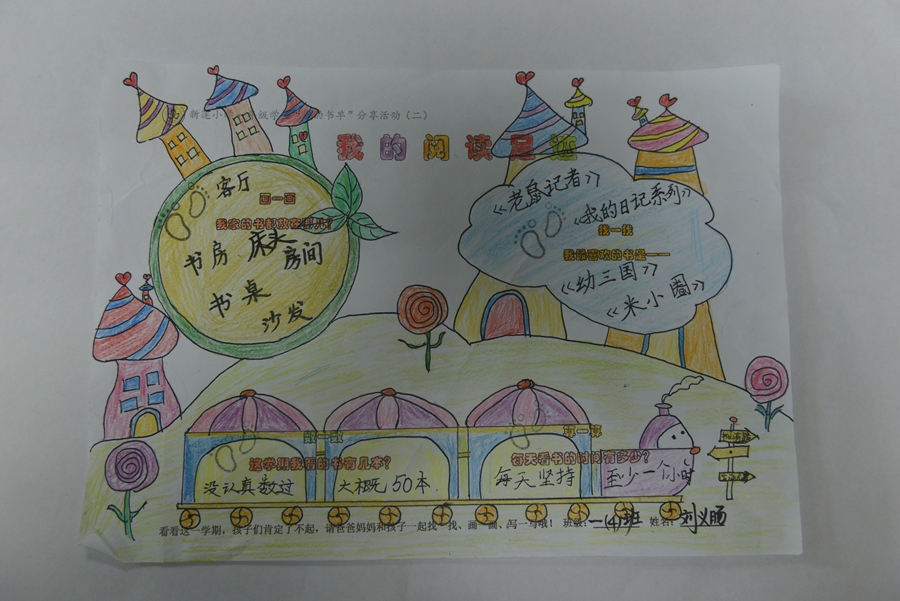 新莲小
级学
书单”分享活动(二)
我的阅读足迹
客厅
画一画
我家的书都放在哪儿?
书房 床头 房间
书桌
沙发
《老鼠记者》
《我的日记系列》
找一找
我最喜欢的书是——
《幼三国》
《米小圈》
数一数
这学期我看的书有几本?
没认真数过 大概50本.
算一算
每天看书的时间有多少?
每天坚持 至少一个小时
看看这一学期,孩子们肯定了不起,请爸爸妈妈和孩子一起找一找、画一画、写一写哦! 班级:一(4)班 姓名:刘义肠